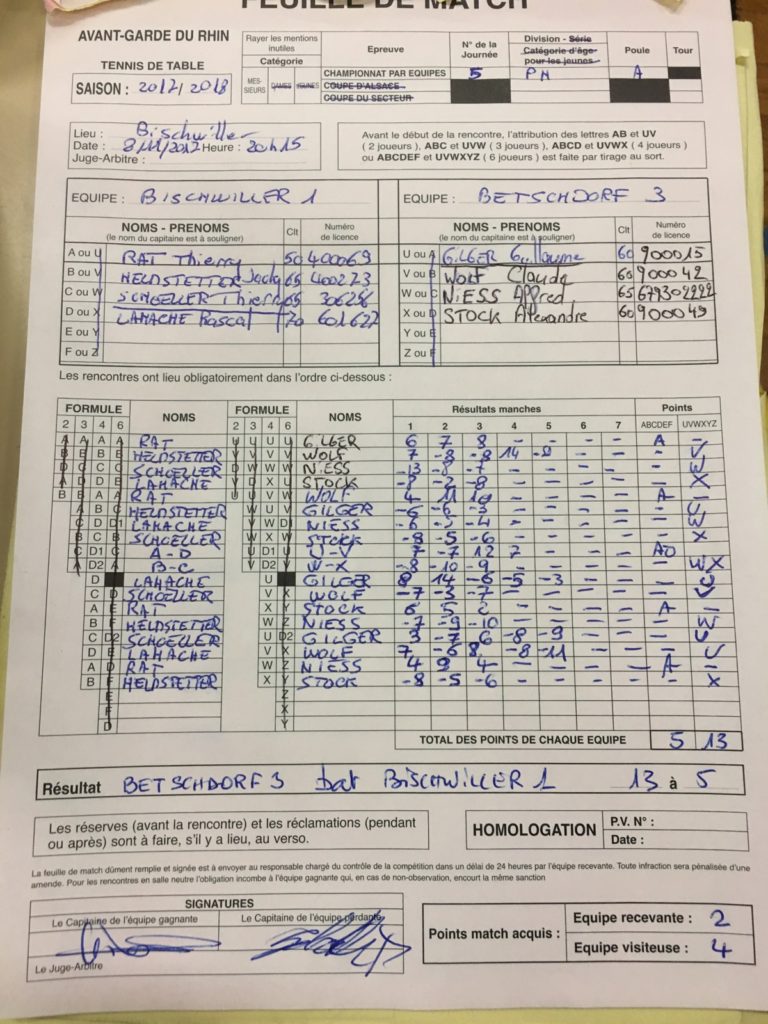 FEUILLE DE MATCH
AVANT-GARDE DU RHIN
TENNIS DE TABLE
SAISON : 2017/2018
Rayer les mentions inutiles
Catégorie
MES-SIEURS DAMES JEUNES
Epreuve
CHAMPIONNAT PAR EQUIPES
COUPE D'ALSACE
COUPE DU SECTEUR
N° de la Journée
5
Division - Série
Catégorie d'âge
pour les jeunes
PN
Poule
A
Tour
Lieu : Bischwiller
Date : 8/11/2017 Heure : 20h15
Juge-Arbitre :
Avant le début de la rencontre, l'attribution des lettres AB et UV
( 2 joueurs ), ABC et UVW ( 3 joueurs ), ABCD et UVWX ( 4 joueurs )
ou ABCDEF et UVWXYZ ( 6 joueurs ) est faite par tirage au sort.
EQUIPE : BISCHWILLER 1
EQUIPE : BETSCHDORF 3
NOMS - PRENOMS Clt Numéro de licence
(le nom du capitaine est à souligner)
A ou U RAT Thierry 50 400069
B ou V HELDSTETTER Jacky 65 400273
C ou W SCHOELLER Thierry 65
D ou X LAMACHE Pascal 70 601622
E ou Y
F ou Z
NOMS - PRENOMS Clt Numéro de licence
(le nom du capitaine est à souligner)
U ou A GILGER Guillaume 60 900015
V ou B WOLF Claude 60 900042
W ou C NIESS Alfred 65 679302222
X ou D STOCK Alexandre 60 900049
Y ou E
Z ou F
Les rencontres ont lieu obligatoirement dans l'ordre ci-dessous :
FORMULE NOMS FORMULE NOMS Résultats manches Points
2 3 4 6 2 3 4 6 1 2 3 4 5 6 7 ABCDEF UVWXYZ
A A A A RAT U U U U GILGER 6 7 8 - - - - A -
B B B B HELDSTETTER V V V V WOLF 7 -8 -8 14 -8 - - - V
C C SCHOELLER W W NIESS -13 -8 -7 - - - - - W
D LAMACHE X STOCK -8 -2 -8 - - - - - X
B B A A RAT V WOLF 4 11 10 - - - - A -
B HELDSTETTER U GILGER -6 -6 -3 - - - - - U
D D1 LAMACHE W D1 NIESS -6 -5 -4 - - - - - W
C SCHOELLER X STOCK -8 -5 -6 - - - - - X
D1 A-D D1 U-V 7 -7 12 7 - - - AD -
D2 B-C D2 W-X -8 -10 -9 - - - - - WX
D LAMACHE U GILGER 8 14 -6 -5 -3 - - - U
C SCHOELLER V WOLF -7 -3 -7 - - - - - V
A RAT X STOCK 6 5 2 - - - - A -
B HELDSTETTER W NIESS -7 -9 -10 - - - - - W
C D2 SCHOELLER U D2 GILGER 3 -7 6 -8 -9 - - - U
D LAMACHE V WOLF 7 -6 8 -8 -11 - - - V
A RAT W NIESS 4 9 4 - - - - A -
B HELDSTETTER X STOCK -8 -5 -6 - - - - - X
TOTAL DES POINTS DE CHAQUE EQUIPE 5 13
Résultat BETSCHDORF 3 bat BISCHWILLER 1 13 à 5
Les réserves (avant la rencontre) et les réclamations (pendant
ou après) sont à faire, s'il y a lieu, au verso.
HOMOLOGATION
P.V. N° :
Date :
La feuille de match dûment remplie et signée est à envoyer au responsable chargé du contrôle de la compétition dans un délai de 24 heures par l'équipe recevante. Toute infraction sera pénalisée d'une
amende. Pour les rencontres en salle neutre l'obligation incombe à l'équipe gagnante qui, en cas de non-observation, encourt la même sanction
SIGNATURES
Le Capitaine de l'équipe gagnante
Le Capitaine de l'équipe perdante
Le Juge-Arbitre
Points match acquis :
Equipe recevante : 2
Equipe visiteuse : 4